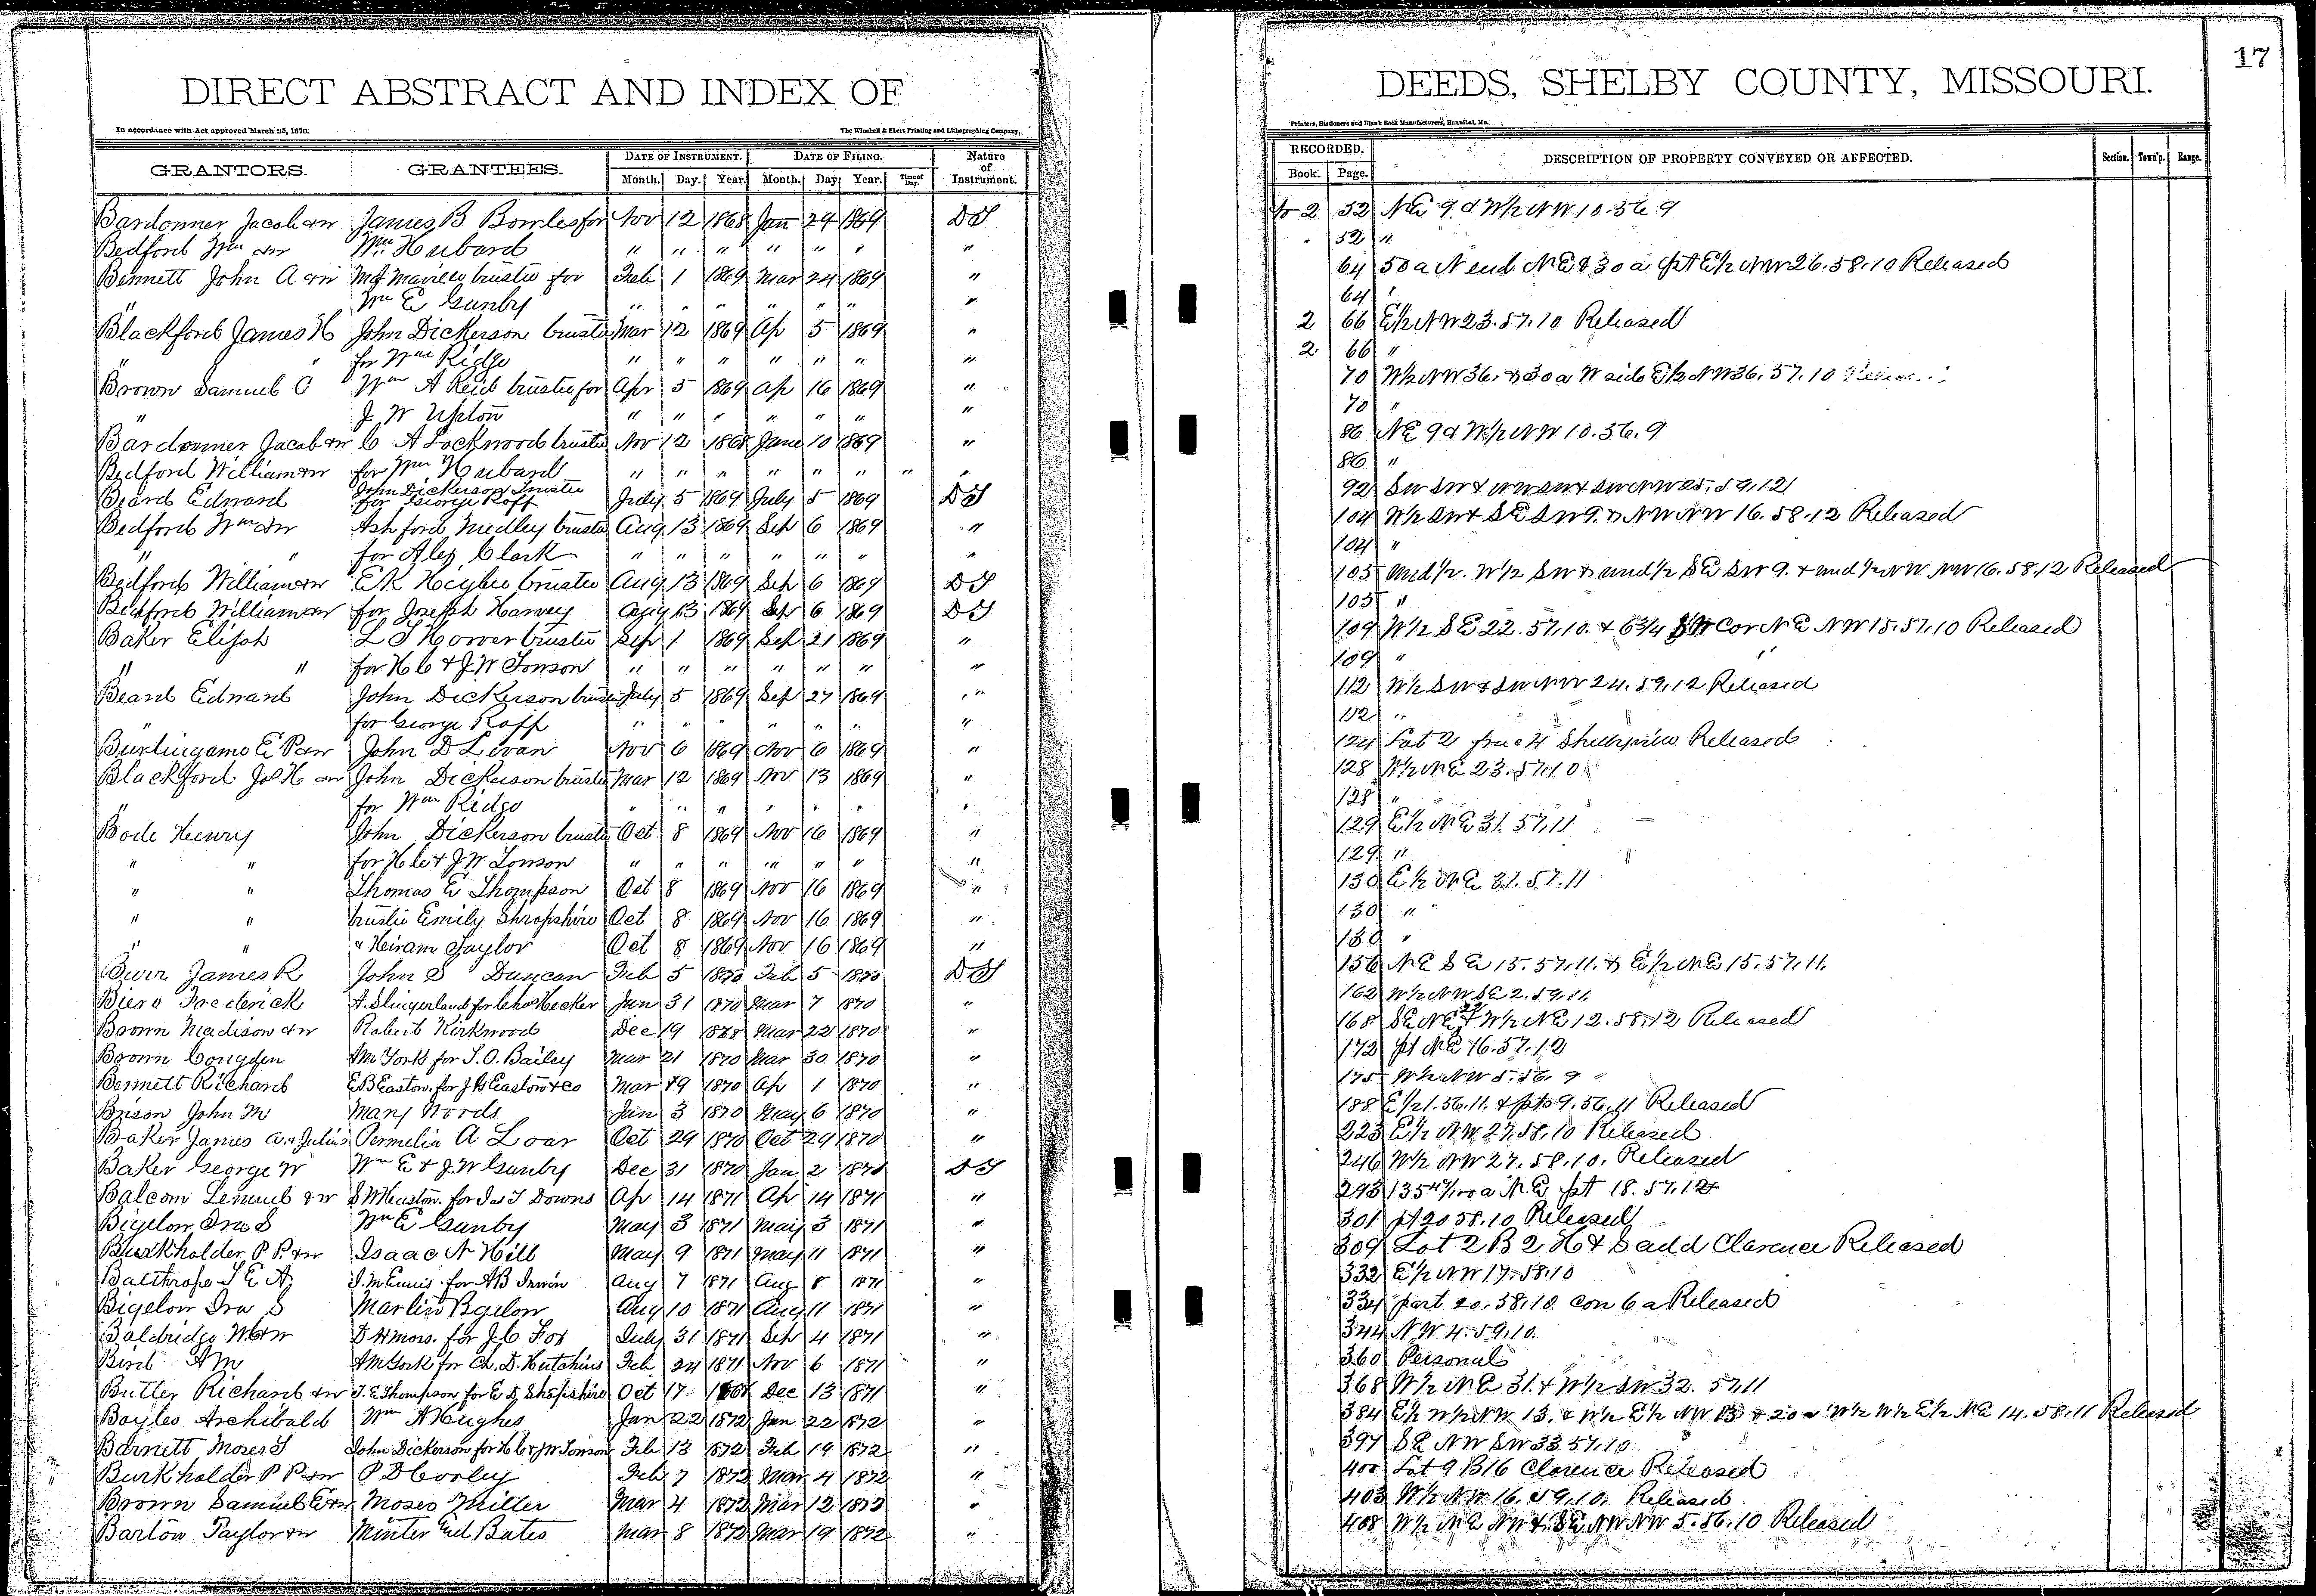 17
DIRECT ABSTRACT AND INDEX OF DEEDS, SHELBY COUNTY, MISSOURI.
In accordance with Act approved March 25, 1870. The Winchell & Ebert Printing and Lithographing Company, Printers, Stationers and Blank Book Manufacturers, Hannibal, Mo.
GRANTORS. GRANTEES. DATE OF INSTRUMENT. DATE OF FILING. Nature of Instrument. RECORDED. DESCRIPTION OF PROPERTY CONVEYED OR AFFECTED. Section. Town'p. Range.
Month. Day. Year. Month. Day. Year. Time of Day. Book. Page.
Bardonner Jacob &w James B Bowles for Nov 12 1868 Jan 29 1869 DT 2 52 NE 9 & W½ NW 10.56.9
Bedford Wm &w Wm Hubard " " " " " " " " 52 "
Bennett John A &w trustee for Feb 1 1869 Mar 24 1869 " 64 50 a N end NE & 30 a pt E½ NW 26.58.10 Released
" Wm E Gunby " " " " " " " 64 "
Blackford James H John Dickerson trustee Mar 12 1869 Ap 5 1869 " 2 66 E½ NW 23.57.10 Released
" " for Wm Ridge " " " " " " " 2 66 "
Brown Samuel C Wm A Reid trustee for Apr 5 1869 Ap 16 1869 " 70 W½ NW 36. & 30 a W side E½ NW 36.57.10
" J W Upton " " " " " " " 70 "
Bardonner Jacob &w C A Lockwood trustee Nov 12 1868 June 10 1869 " 86 NE 9 & W½ NW 10.56.9
Bedford William &w for Wm Hubard " " " " " " " " 86 "
Beard Edward John Dickerson Trustee for George Roff July 5 1869 July 5 1869 DT 92 SW SW & NW SW & SW NW 25.59.12
Bedford Wm &w Ashford Medley trustee Aug 13 1869 Sep 6 1869 " 104 W½ SW & SE SW 9. & NW NW 16.58.12 Released
" " for Alex Clark " " " " " " " 104 "
Bedford William &w E K trustee Aug 13 1869 Sep 6 1869 DT 105 und ½. W½ SW & und ½ SE SW 9. & und ½ NW NW 16.58.12 Released
Bedford William &w for Joseph Harvey Aug 13 1869 Sep 6 1869 DT 105 "
Baker Elijah L T Hower trustee Sep 1 1869 Sep 21 1869 " 109 W½ SE 22.57.10. & 6¾ Cor NE NW 15.57.10 Released
" " for H C & J W Towson " " " " " " " 109 "
Beard Edward John Dickerson trustee July 5 1869 Sep 27 1869 " 112 W½ SW & SW NW 24.59.12 Released
" for George Roff " " " " " " " 112 "
Burlingame E P &w John D Levan Nov 6 1869 Nov 6 1869 " 124 Lot 2 Shelbyville Released
Blackford Jas H &w John Dickerson trustee Mar 12 1869 Nov 13 1869 " 128 W½ NE 23.57.10
" for Wm Ridge " " " " " " " 128 "
Bode Henry John Dickerson trustee Oct 8 1869 Nov 16 1869 " 129 E½ NE 31.57.11
" " for H C & J W Towson " " " " " " " 129 "
" " Thomas E Thompson Oct 8 1869 Nov 16 1869 " 130 E½ NE 31.57.11
" " trustee Emily Shropshire Oct 8 1869 Nov 16 1869 " 130 "
" " & Hiram Taylor Oct 8 1869 Nov 16 1869 " 130 "
Burr James R John S Duncan Feb 5 1870 Feb 5 1870 DT 156 NE SE 15.57.11. & E½ NE 15.57.11.
Biero Frederick A. Slingerland for Chas Hecker Jan 31 1870 Mar 7 1870 " 162 W½ NW SE 2.59.11.
Brown Madison &w Robert Kirkwood Dec 19 Mar 22 1870 " 168 SE NE & W½ NE 12.58.12 Released
Brown Congden AM York for S.O. Bailey Mar 21 1870 Mar 30 1870 " 172 pt NE 16.57.12
Bennett Richard E B Easton for J B Easton & Co Mar 19 1870 Ap 1 1870 " 175 W½ NW 5.56.9
Brison John M Mary Woods Jan 3 1870 May 6 1870 " 188 E½ 1.56.11. & pts 9.56.11 Released
Baker James Permelia A. Loar Oct 29 1870 Oct 29 1870 " 223 E½ NW 27.58.10 Released
Baker George W Wm E & J.W Gunby Dec 31 1870 Jan 2 1871 DT 246 W½ NW 27.58.10. Released
Balcom Lemuel &w S W Huston for Jas T Downs Ap 14 1871 Ap 14 1871 " 293 a N.E pt 18.57.12
Bigelow Ira S Wm E Gunby May 3 1871 May 3 1871 " 301 pt 20 58.10 Released
Burkholder P P &w Isaac N Hill May 9 1871 May 11 1871 " 309 Lot 2 B 2 H & S add Clarence Released
Balthrope T E A for A B Irwin Aug 7 1871 Aug 8 1871 " 332 E½ NW 17.58.10
Bigelow Ira S Martin Bgelow Aug 10 1871 Aug 11 1871 " 334 part 20.58.10 con 6 a Released
Baldridge &w for J.C Fox July 31 1871 Sep 4 1871 " 344 NW 4.59.10.
Bird A M AM York for Ch. D. Hutchins Feb 24 1871 Nov 6 1871 " 360 Personal
Butler Richard &w T.E Thompson for E D Shopshire Oct 17 Dec 13 1871 " 368 W½ NE 31. & W½ SW 32. 57.11
Bayles Archibald Wm A Hughes Jan 22 1872 Jan 22 1872 " 384 E½ W½ NW 13. & W½ E½ NW 13 & 20 a W½ W½ E½ NE 14.58.11 Released
Barnett Moses T John Dickerson for H C & J W Towson Feb 13 1872 Feb 19 1872 " 397 SE NW SW 33 57.10
Burkholder P P &w P D Cooley Feb 7 1872 Mar 4 1872 " 400 Lot 9 B16 Clarence Released
Brown Samuel C &w Moses Miller Mar 4 1872 Mar 12 1872 " 403 W½ NW 16.59.10. Released
Barton Taylor &w Minter Bates Mar 8 1872 Mar 19 1872 " 408 W½ NE NW & SE NW NW 5.56.10 Released